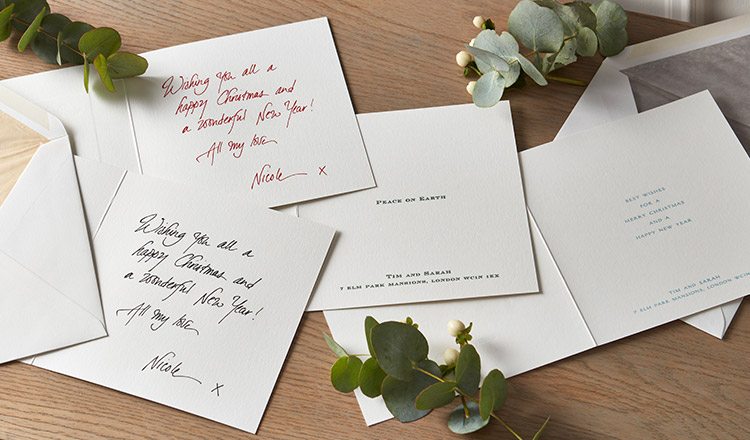 Wishing you all a
happy Christmas and
a wonderful New Year!
All my love
Nicole x
Wishing you all a
happy Christmas and
a wonderful New Year!
All my love
Nicole x
Peace on Earth
Tim and Sarah
7 Elm Park Mansions, London WC1N 1EX
BEST WISHES
FOR A
MERRY CHRISTMAS
AND A
HAPPY NEW YEAR
TIM AND SARAH
7 ELM PARK MANSIONS, LONDON WC1N